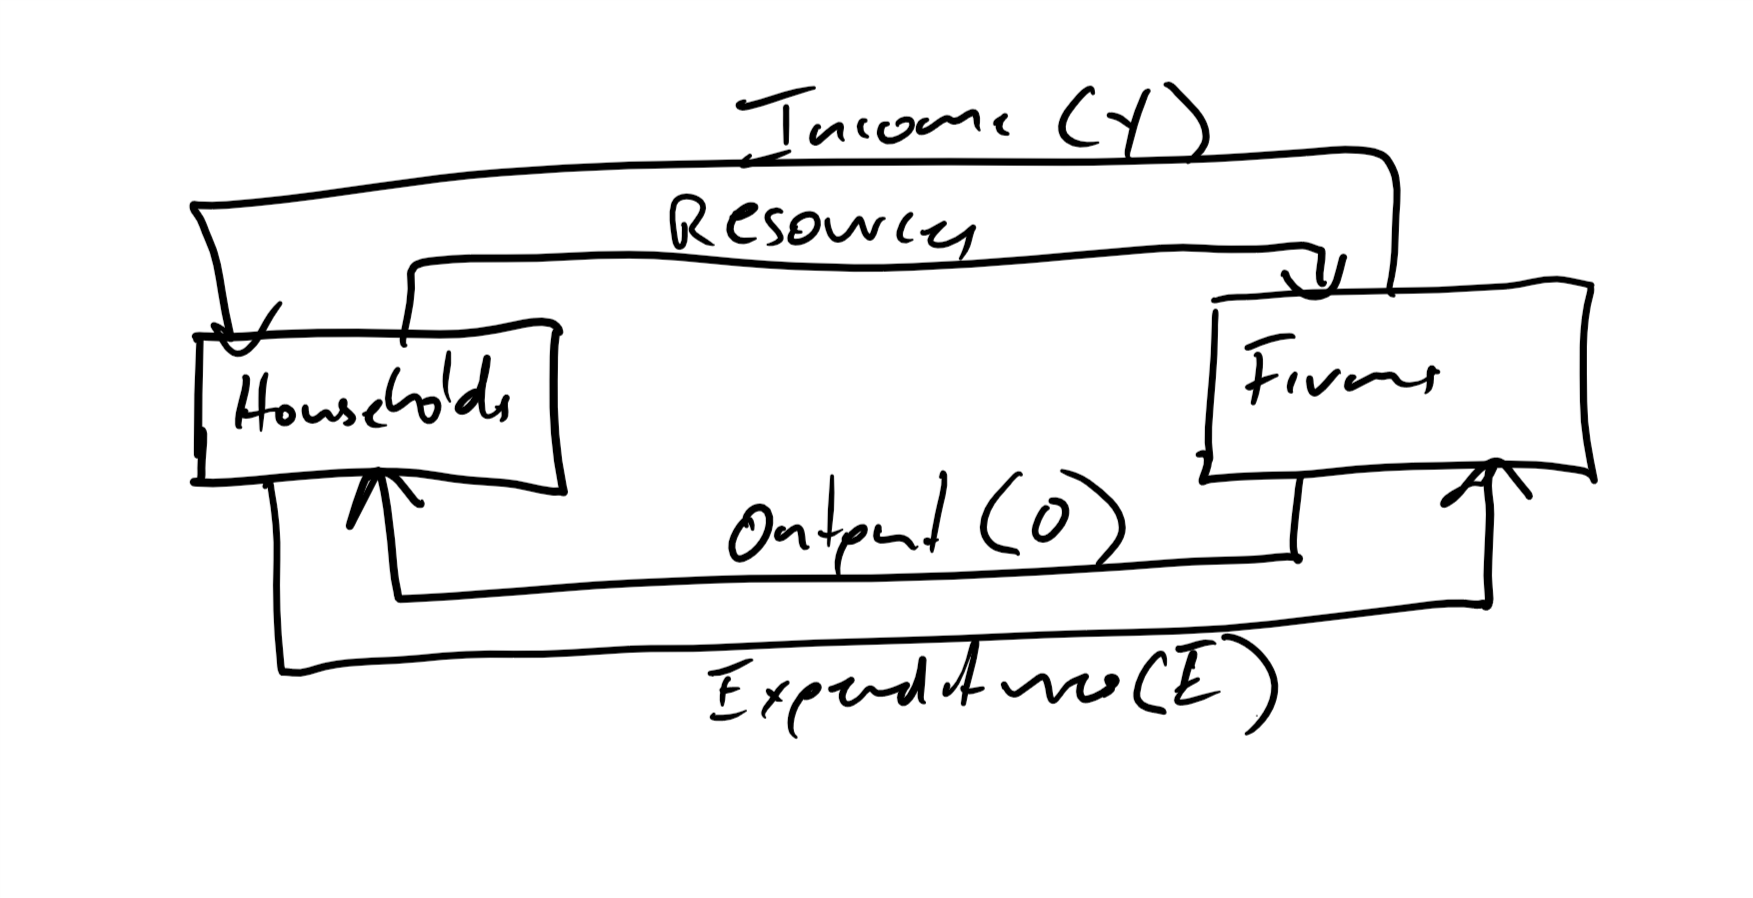 Income (Y)
Resources
Households
Firms
Output (O)
Expenditures (E)